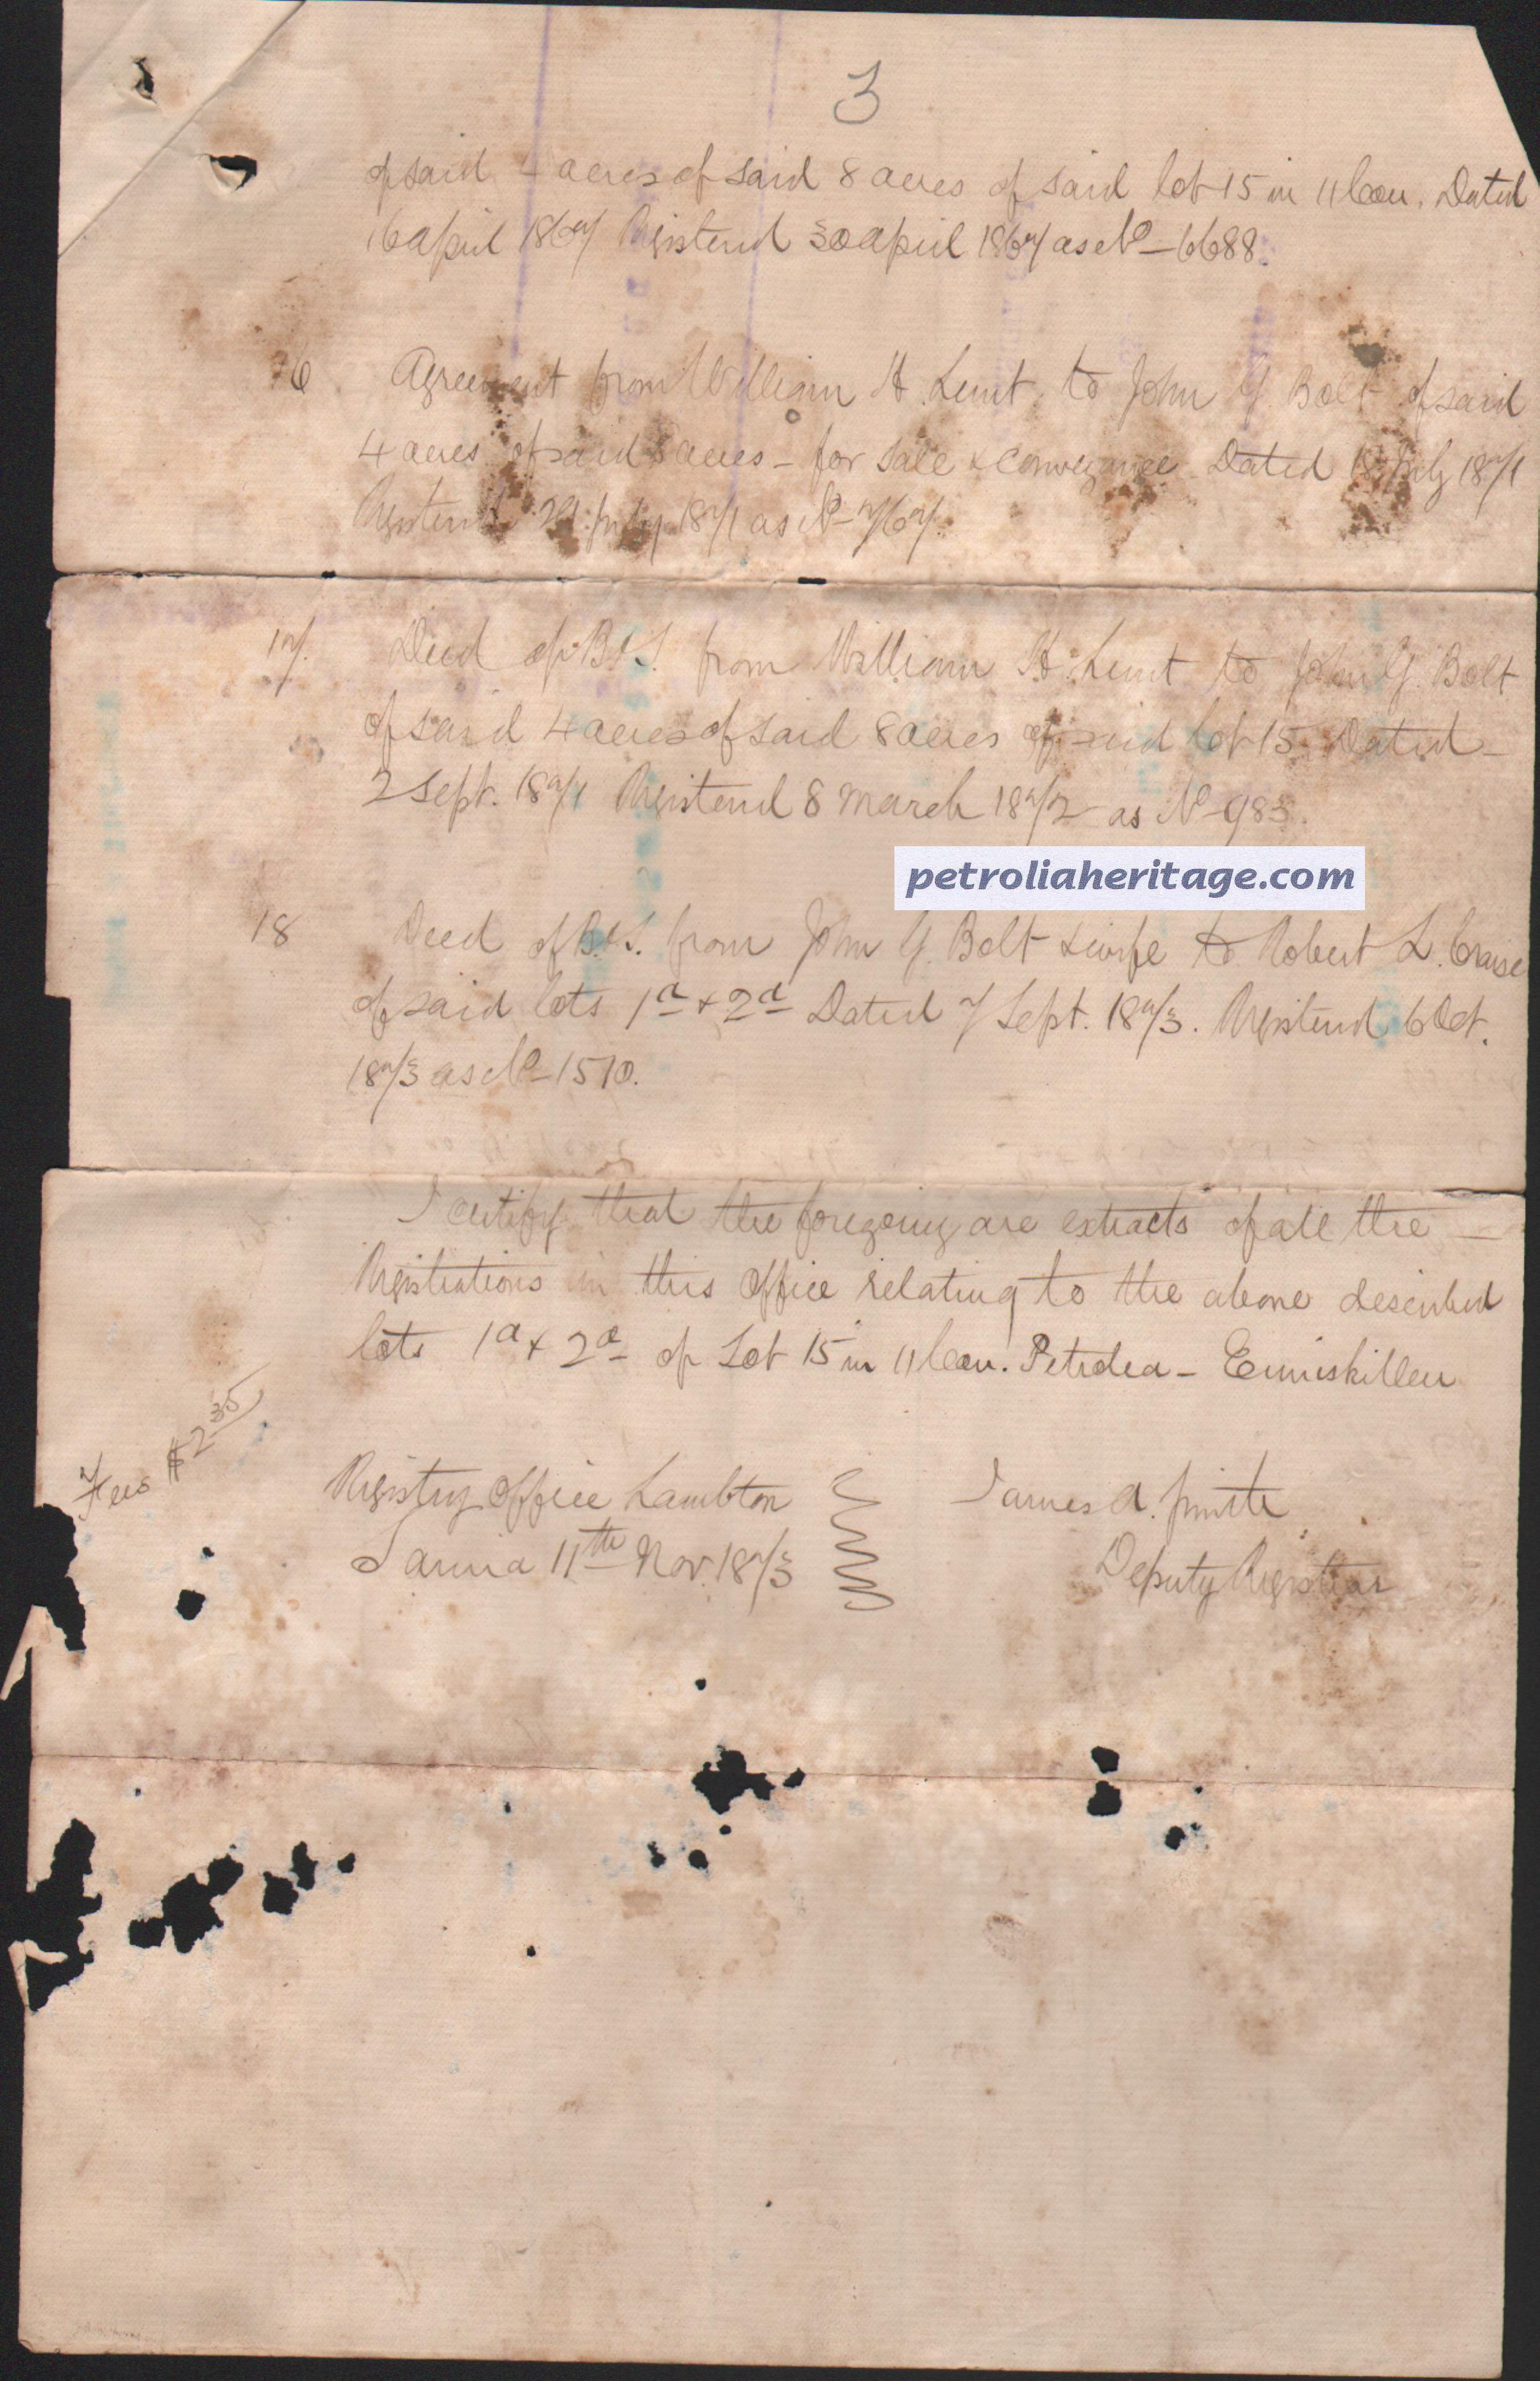 3
of said 4 acres of said 8 acres of said lot 15 in 11 Con. Dated
16 April 1867 Registered 30 April 1867 as No 6688.
16 Agreement from William H. Lunt to John G. Bolt of said
4 acres of said 8 acres - for sale & conveyance Dated 18 July 1871
Registered 29 July 1871 as No 767.
17. Deed of B&S. from William H. Lunt to John G. Bolt
of said 4 acres of said 8 acres of said lot 15 Dated
2 Sept. 1871 Registered 8 March 1872 as No 983.
petroliaheritage.com
18 Deed of B&S. from John G. Bolt & wife to Robert L.
of said lots 1a & 2a Dated 7 Sept. 1873. Registered 6 Oct.
1873 as No 1510.
I certify that the foregoing are extracts of all the
Registrations in this Office relating to the above described
lots 1a & 2a of Lot 15 in 11 Con. Petrolea - Enniskillen
Fees $2 35
Registry Office Lambton
Sarnia 11th Nov 1873
James A. Smith
Deputy Registrar